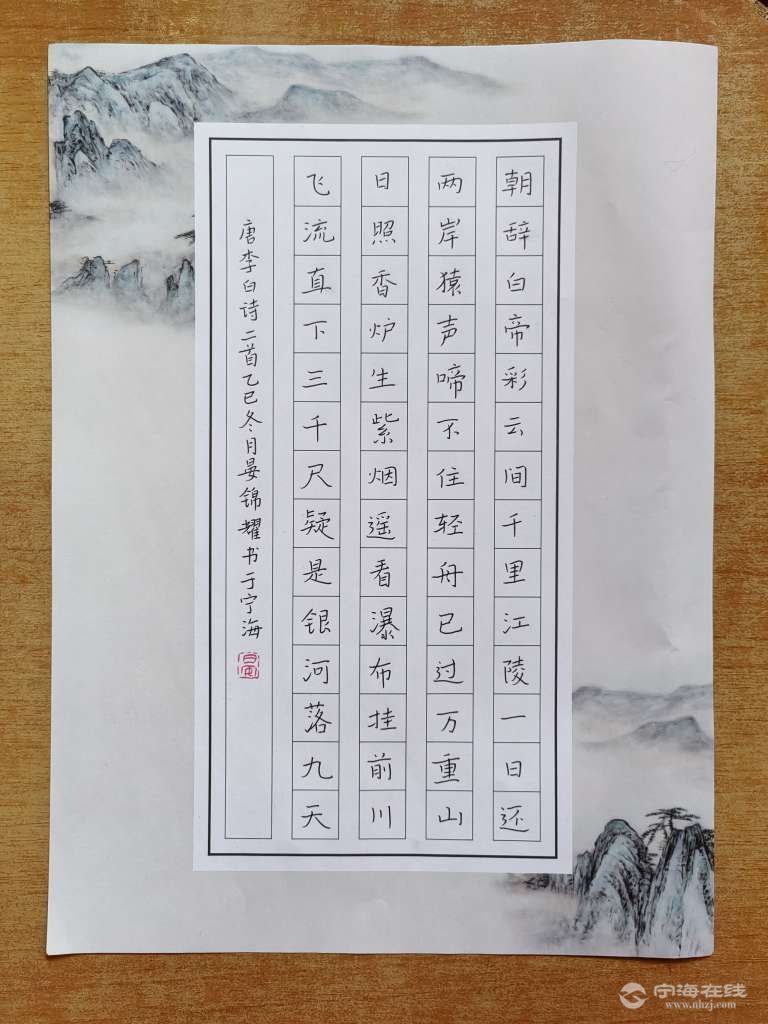 朝辞白帝彩云间千里江陵一日还
两岸猿声啼不住轻舟已过万重山
日照香炉生紫烟遥看瀑布挂前川
飞流直下三千尺疑是银河落九天
唐李白诗二首乙巳冬月晏锦耀书于宁海
宁海在线
www.nhzj.com